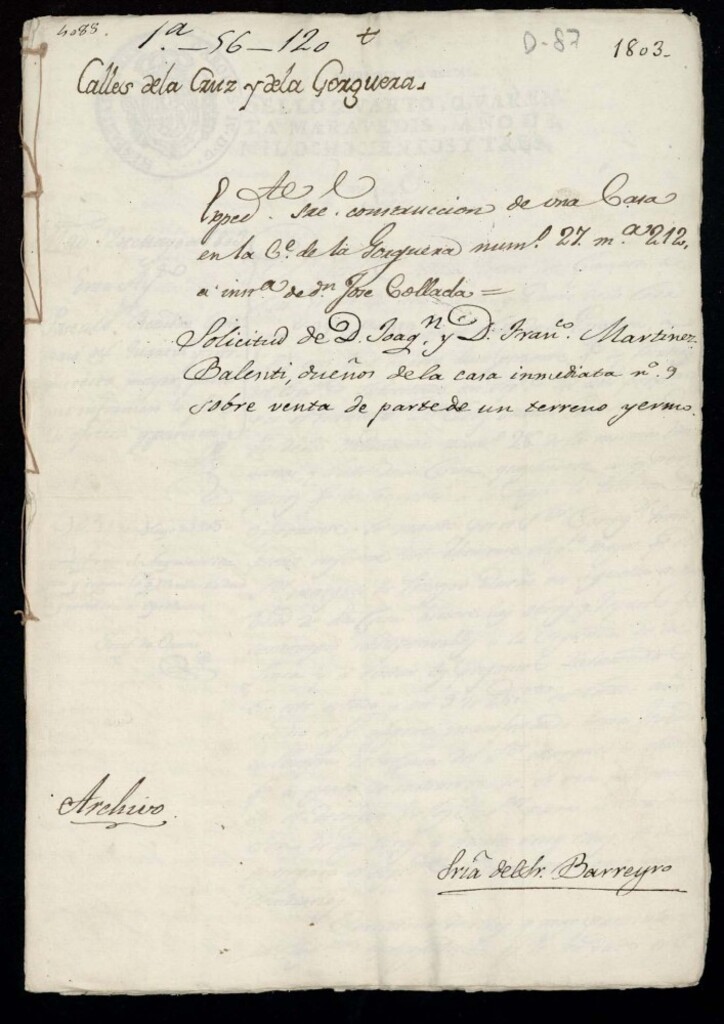 4088.
1.ª-56-120 t
D-87
1803-
Calles dela Cruz y dela Gorguera.
Exped.te s.re construccion de una Casa
en la C.e de la Gorguera num.o 27. m.a 212,
a inst.a de d.n Jose Collada=
Solicitud de D. Joaq.n y D. Fran.co Martinez
Balenti, dueños de la casa inmediata n.o 9
sobre venta de parte de un terreno yermo.
Archivo.
Sria del Sr. Barreyro